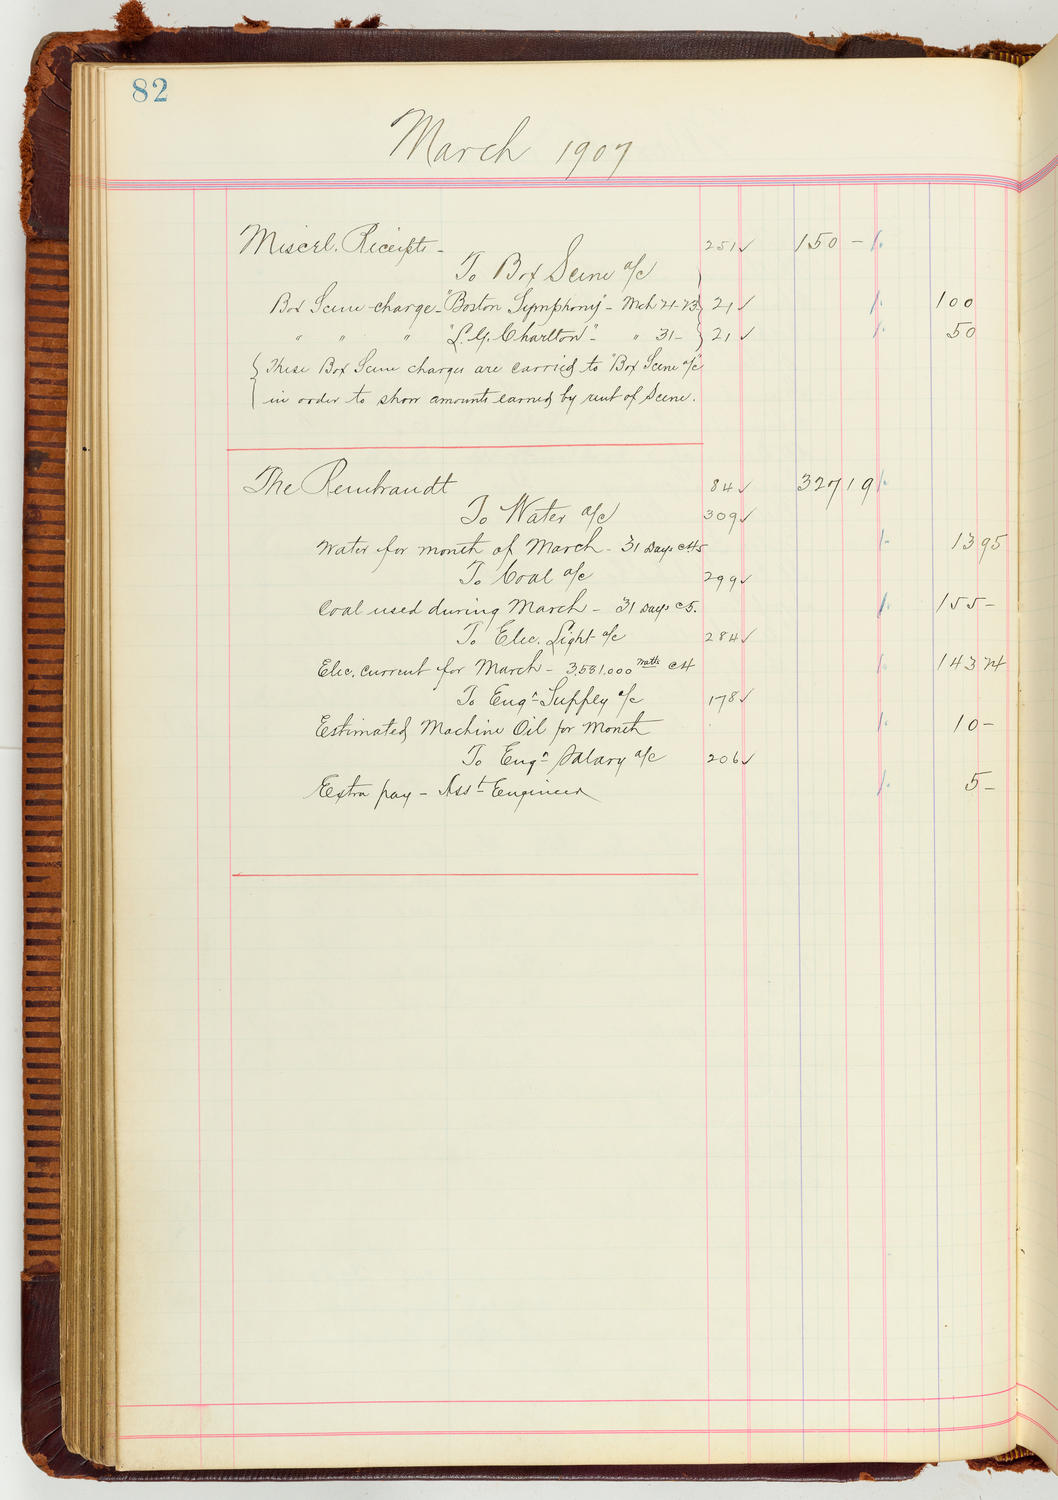 82
March 1907
Miscel. Receipts - 251 ✓ 150 –
To Box Scene a/c
Box Scene charge - "Boston Symphony" - Mch 21-23 21 ✓ 100
" " " "L. G. Charlton" - " 31 - 21 ✓ 50
These Box Scene charges are carried to "Box Scene a/c"
in order to show amounts earned by rent of Scene.
The Rembrandt 84 ✓ 327 19
To Water a/c 309 ✓
Water for month of March - 31 Days @ 45 13 95
To Coal a/c 299 ✓
Coal used during March - 31 Days @ 5. 155 –
To Elec. Light a/c 284 ✓
Elec. current for March - 3,581,000 watts @ 4 143 24
To Engrs Supply a/c 178 ✓
Estimated Machine Oil for Month 10 –
To Engrs Salary a/c 206 ✓
Extra pay - Asst Engineer 5 –